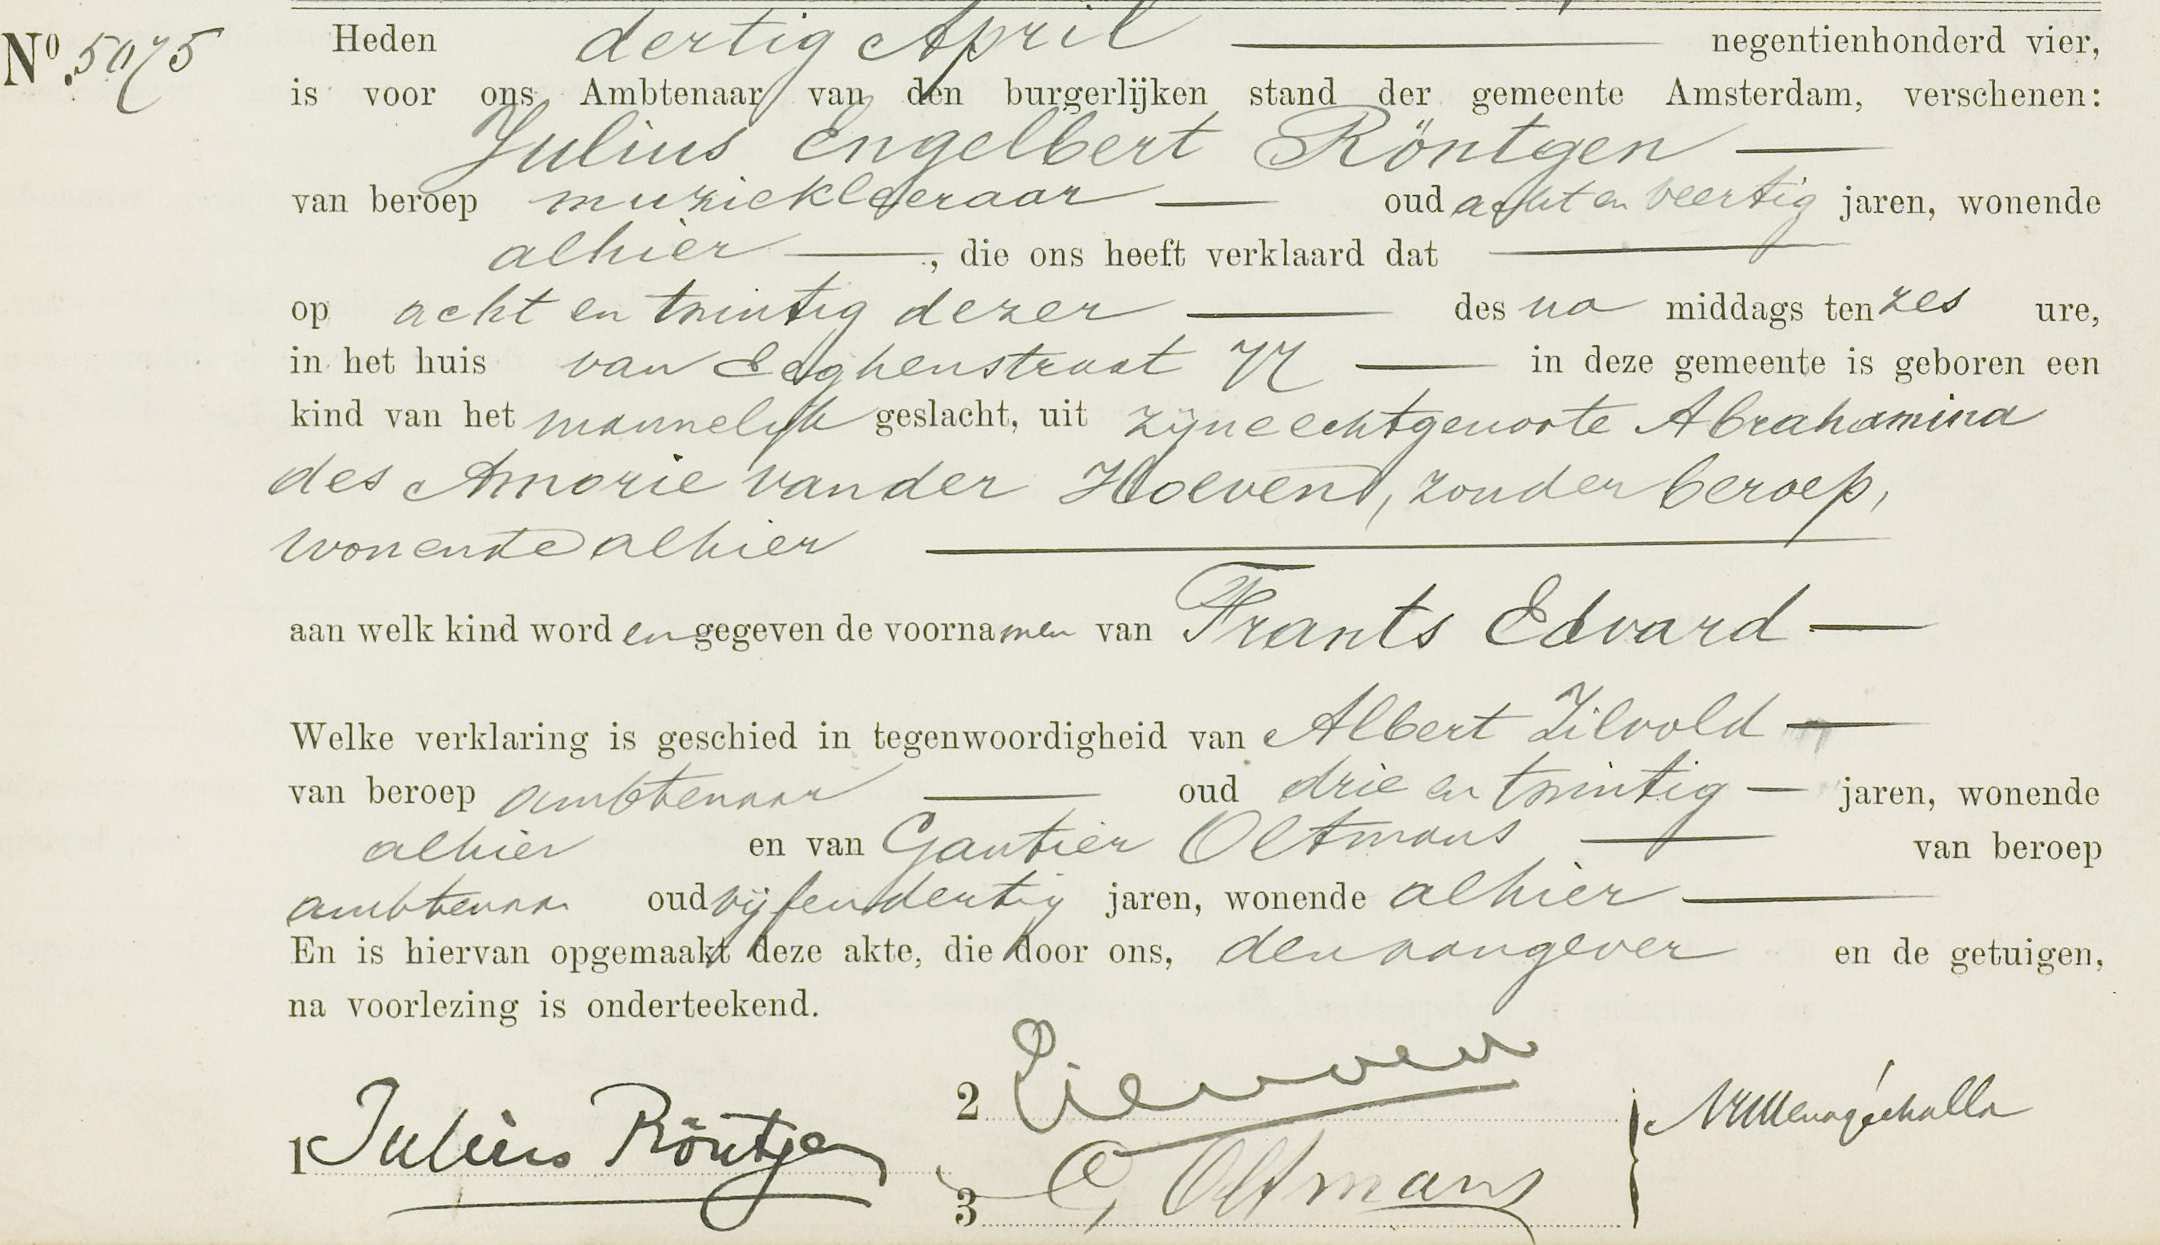 No. 5075
Heden dertig April negentienhonderd vier,
is voor ons Ambtenaar van den burgerlijken stand der gemeente Amsterdam, verschenen:
Julius Engelbert Röntgen
van beroep muziekleeraar oud acht en veertig jaren, wonende
alhier, die ons heeft verklaard dat
op acht en twintig dezer des na middags ten zes ure,
in het huis van Eeghenstraat 77 in deze gemeente is geboren een
kind van het mannelijk geslacht, uit zijne echtgenoote Abrahamina
des Amorie van der Hoeven, zonder beroep,
wonende alhier
aan welk kind worden gegeven de voornamen van Frants Edvard
Welke verklaring is geschied in tegenwoordigheid van Albert Zilvold
van beroep ambtenaar oud drie en twintig jaren, wonende
alhier en van Gautier Oltmans van beroep
ambtenaar oud vijf en dertig jaren, wonende alhier
En is hiervan opgemaakt deze akte, die door ons, den aangever en de getuigen,
na voorlezing is onderteekend.
1 Julius Röntgen
2
3 G Oltmans